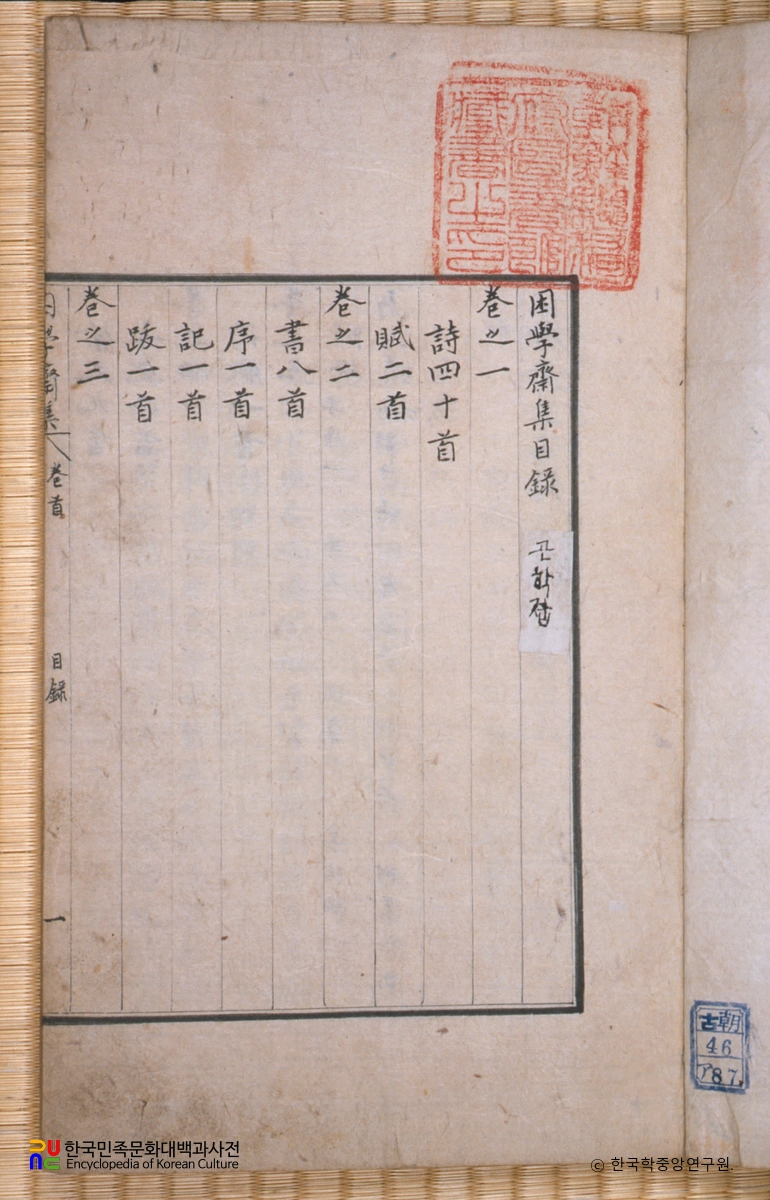 藏書之印
困學齋集目錄
곤학
卷之一
詩四十首
賦二首
卷之二
書八首
序一首
記一首
跋一首
卷之三
困學齋集 卷首 目錄 一
古朝
46
87
한국민족문화대백과사전
Encyclopedia of Korean Culture
© 한국학중앙연구원.